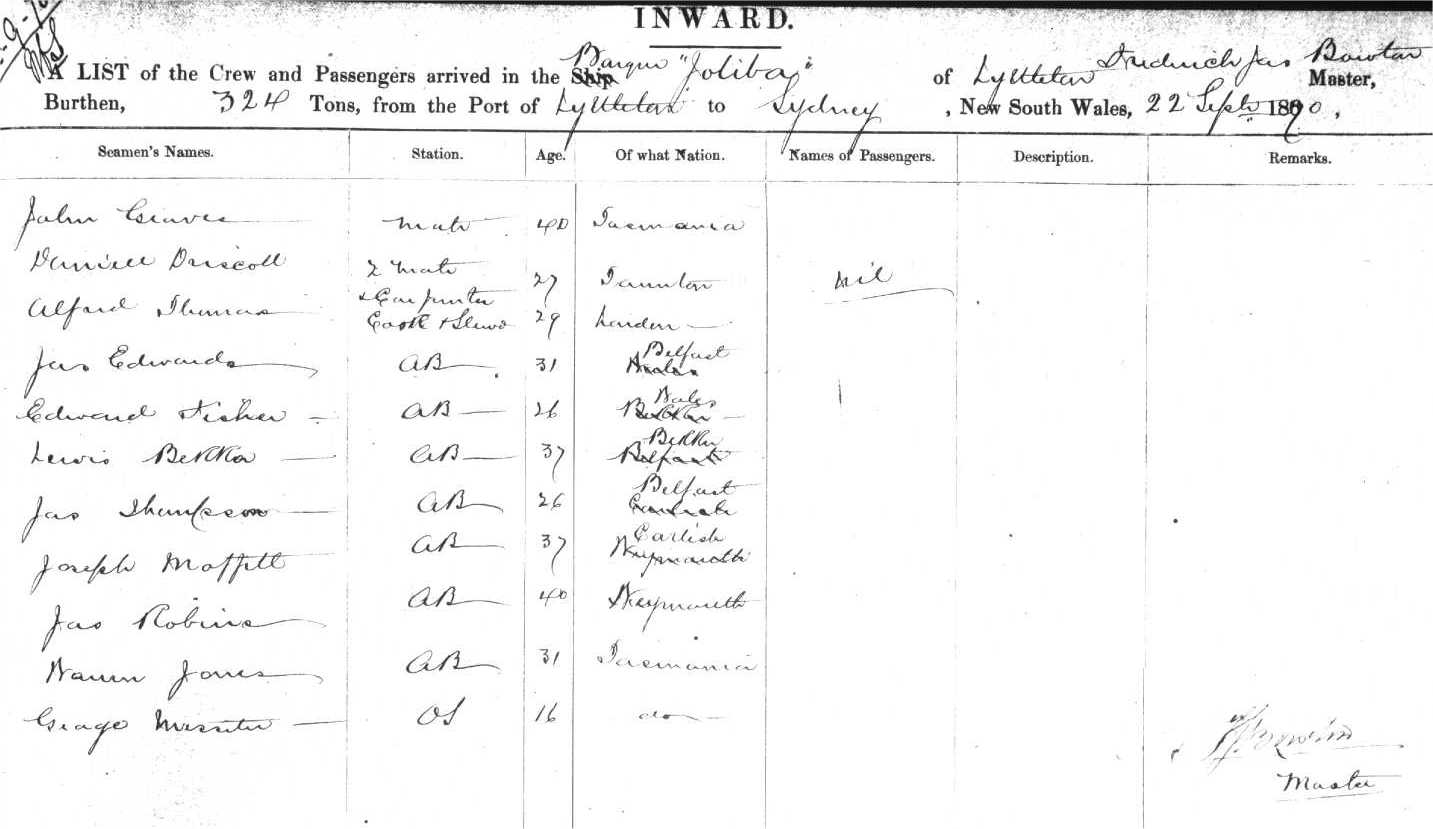 INWARD.
A LIST of the Crew and Passengers arrived in the Ship Barque "Joliba" of Lyttleton Fredrich Jas Bowton Master,
Burthen, 324 Tons, from the Port of Lyttleton to Sydney, New South Wales, 22 Septr 1890.
Seamen's Names. Station. Age. Of what Nation. Names of Passengers. Description. Remarks.
John mate 40 Tasmania
Daniell Driscoll 2 mate & Carpenter 27 Taunton nil
Alfard Thomas Cook & Stewd 29 London
Jas Edwards AB 31 Belfast
Edward Fisher AB 26 Wales
Lewis Bekka AB 37
Jas Thompson AB 26 Belfast
Joseph Moffitt AB 37 Carlish Weymouth
Jas Robins AB 40 Weymouth
Jones AB 31 Tasmania
George Messiter OS 16 do
Master